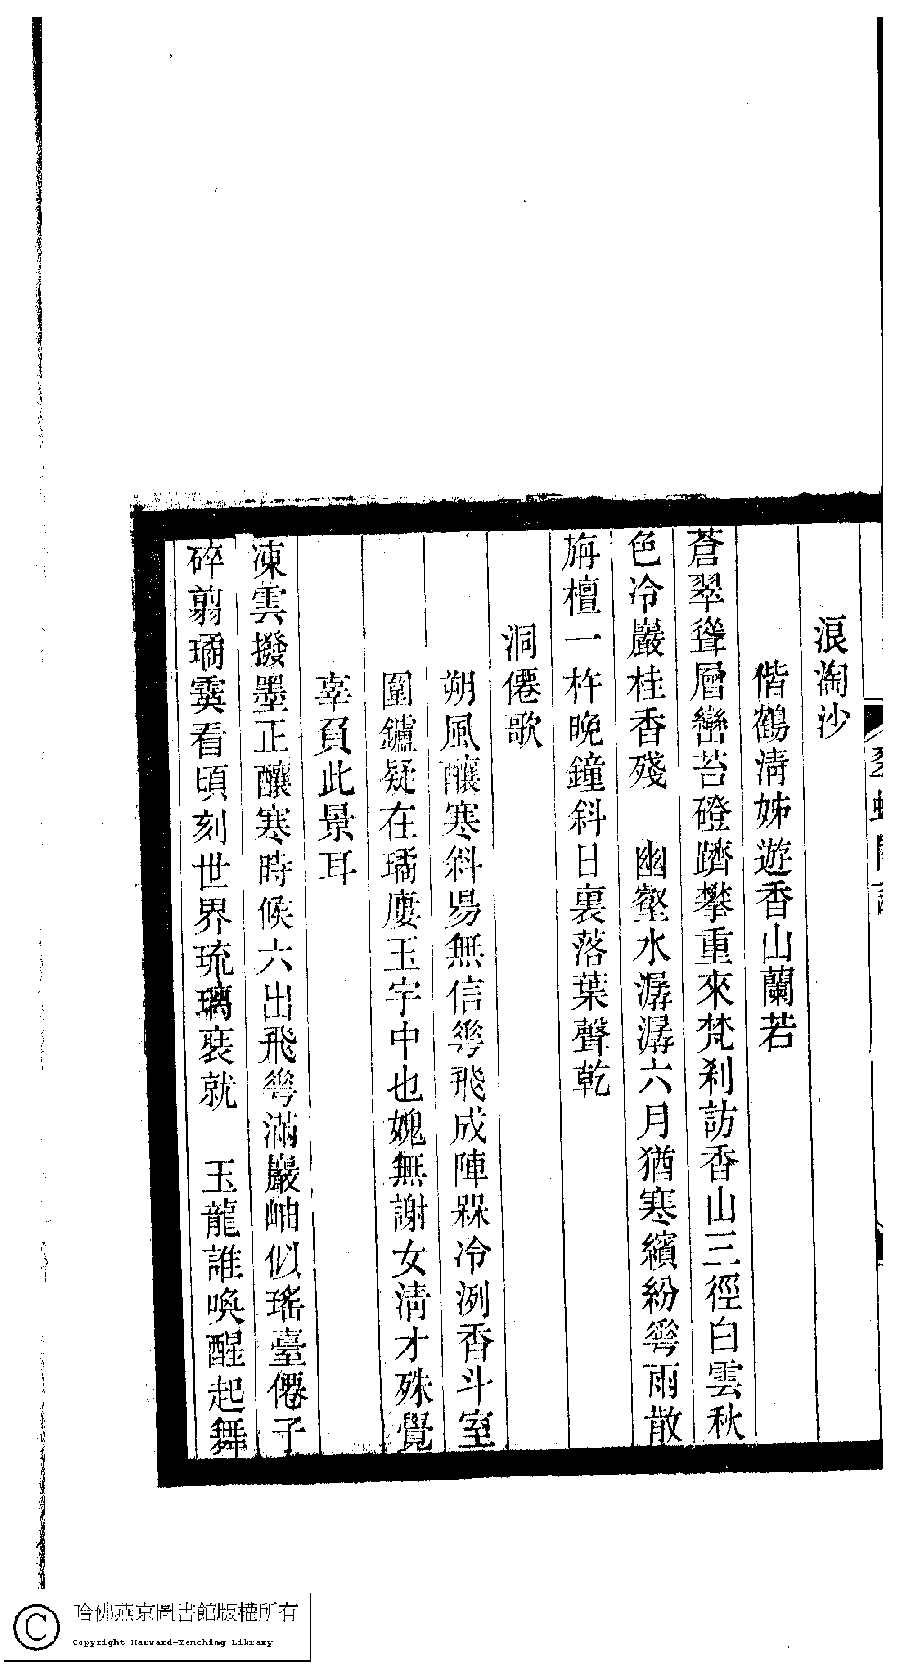 浪淘沙
偕鶴淸姊遊香山蘭若
蒼翠聳層巒苔磴躋攀重來梵刹訪香山三徑白雲秋
色冷巖桂香殘　幽壑水潺潺六月猶寒繽紛蕐雨散
旃檀一杵晚鐘斜日裏落葉聲乾
洞僊歌
朔風釀寒斜昜無信蕐飛成陣冞冷洌香斗室
圍鑪疑在璚廔玉宇中也媿無謝女淸才殊覺
辜負此景耳
凍雲撥墨正釀寒時候六出飛蕐滿巖岫似瑤臺僊子
碎翦璚霙看頃刻世界琉璃裝就　玉龍誰喚醒起舞
哈佛燕京圖書館版權所有
Copyright Harvard-Yenching Library